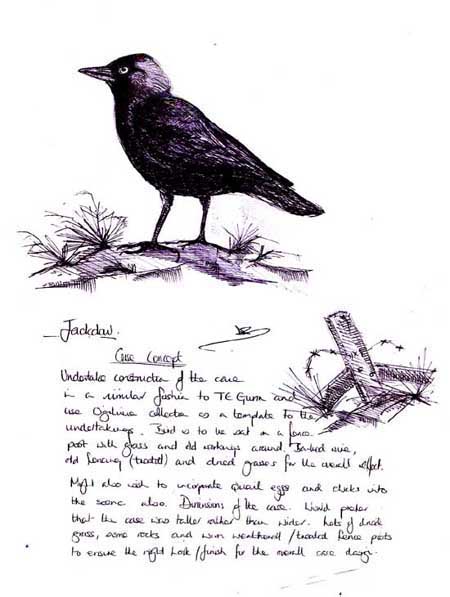 Jackdaw.
Case Concept
Undertake construction of the case
in a similar fashion to TE Gunn and
use Ogilvie collection as a template to the
undertakings. Bird is to be sat on a fence
post with grass and old workings around. Barbed wire,
old fencing (treated) and dried grasses for the overall effect.
Might also wish to incorporate Quail eggs and chicks into
the scene also. Dimensions of the case. Would prefer
that the case was taller rather than wider. Lots of dried
grass, some rocks and worn weathered/treated fence posts
to ensure the right look/finish for the overall case design.